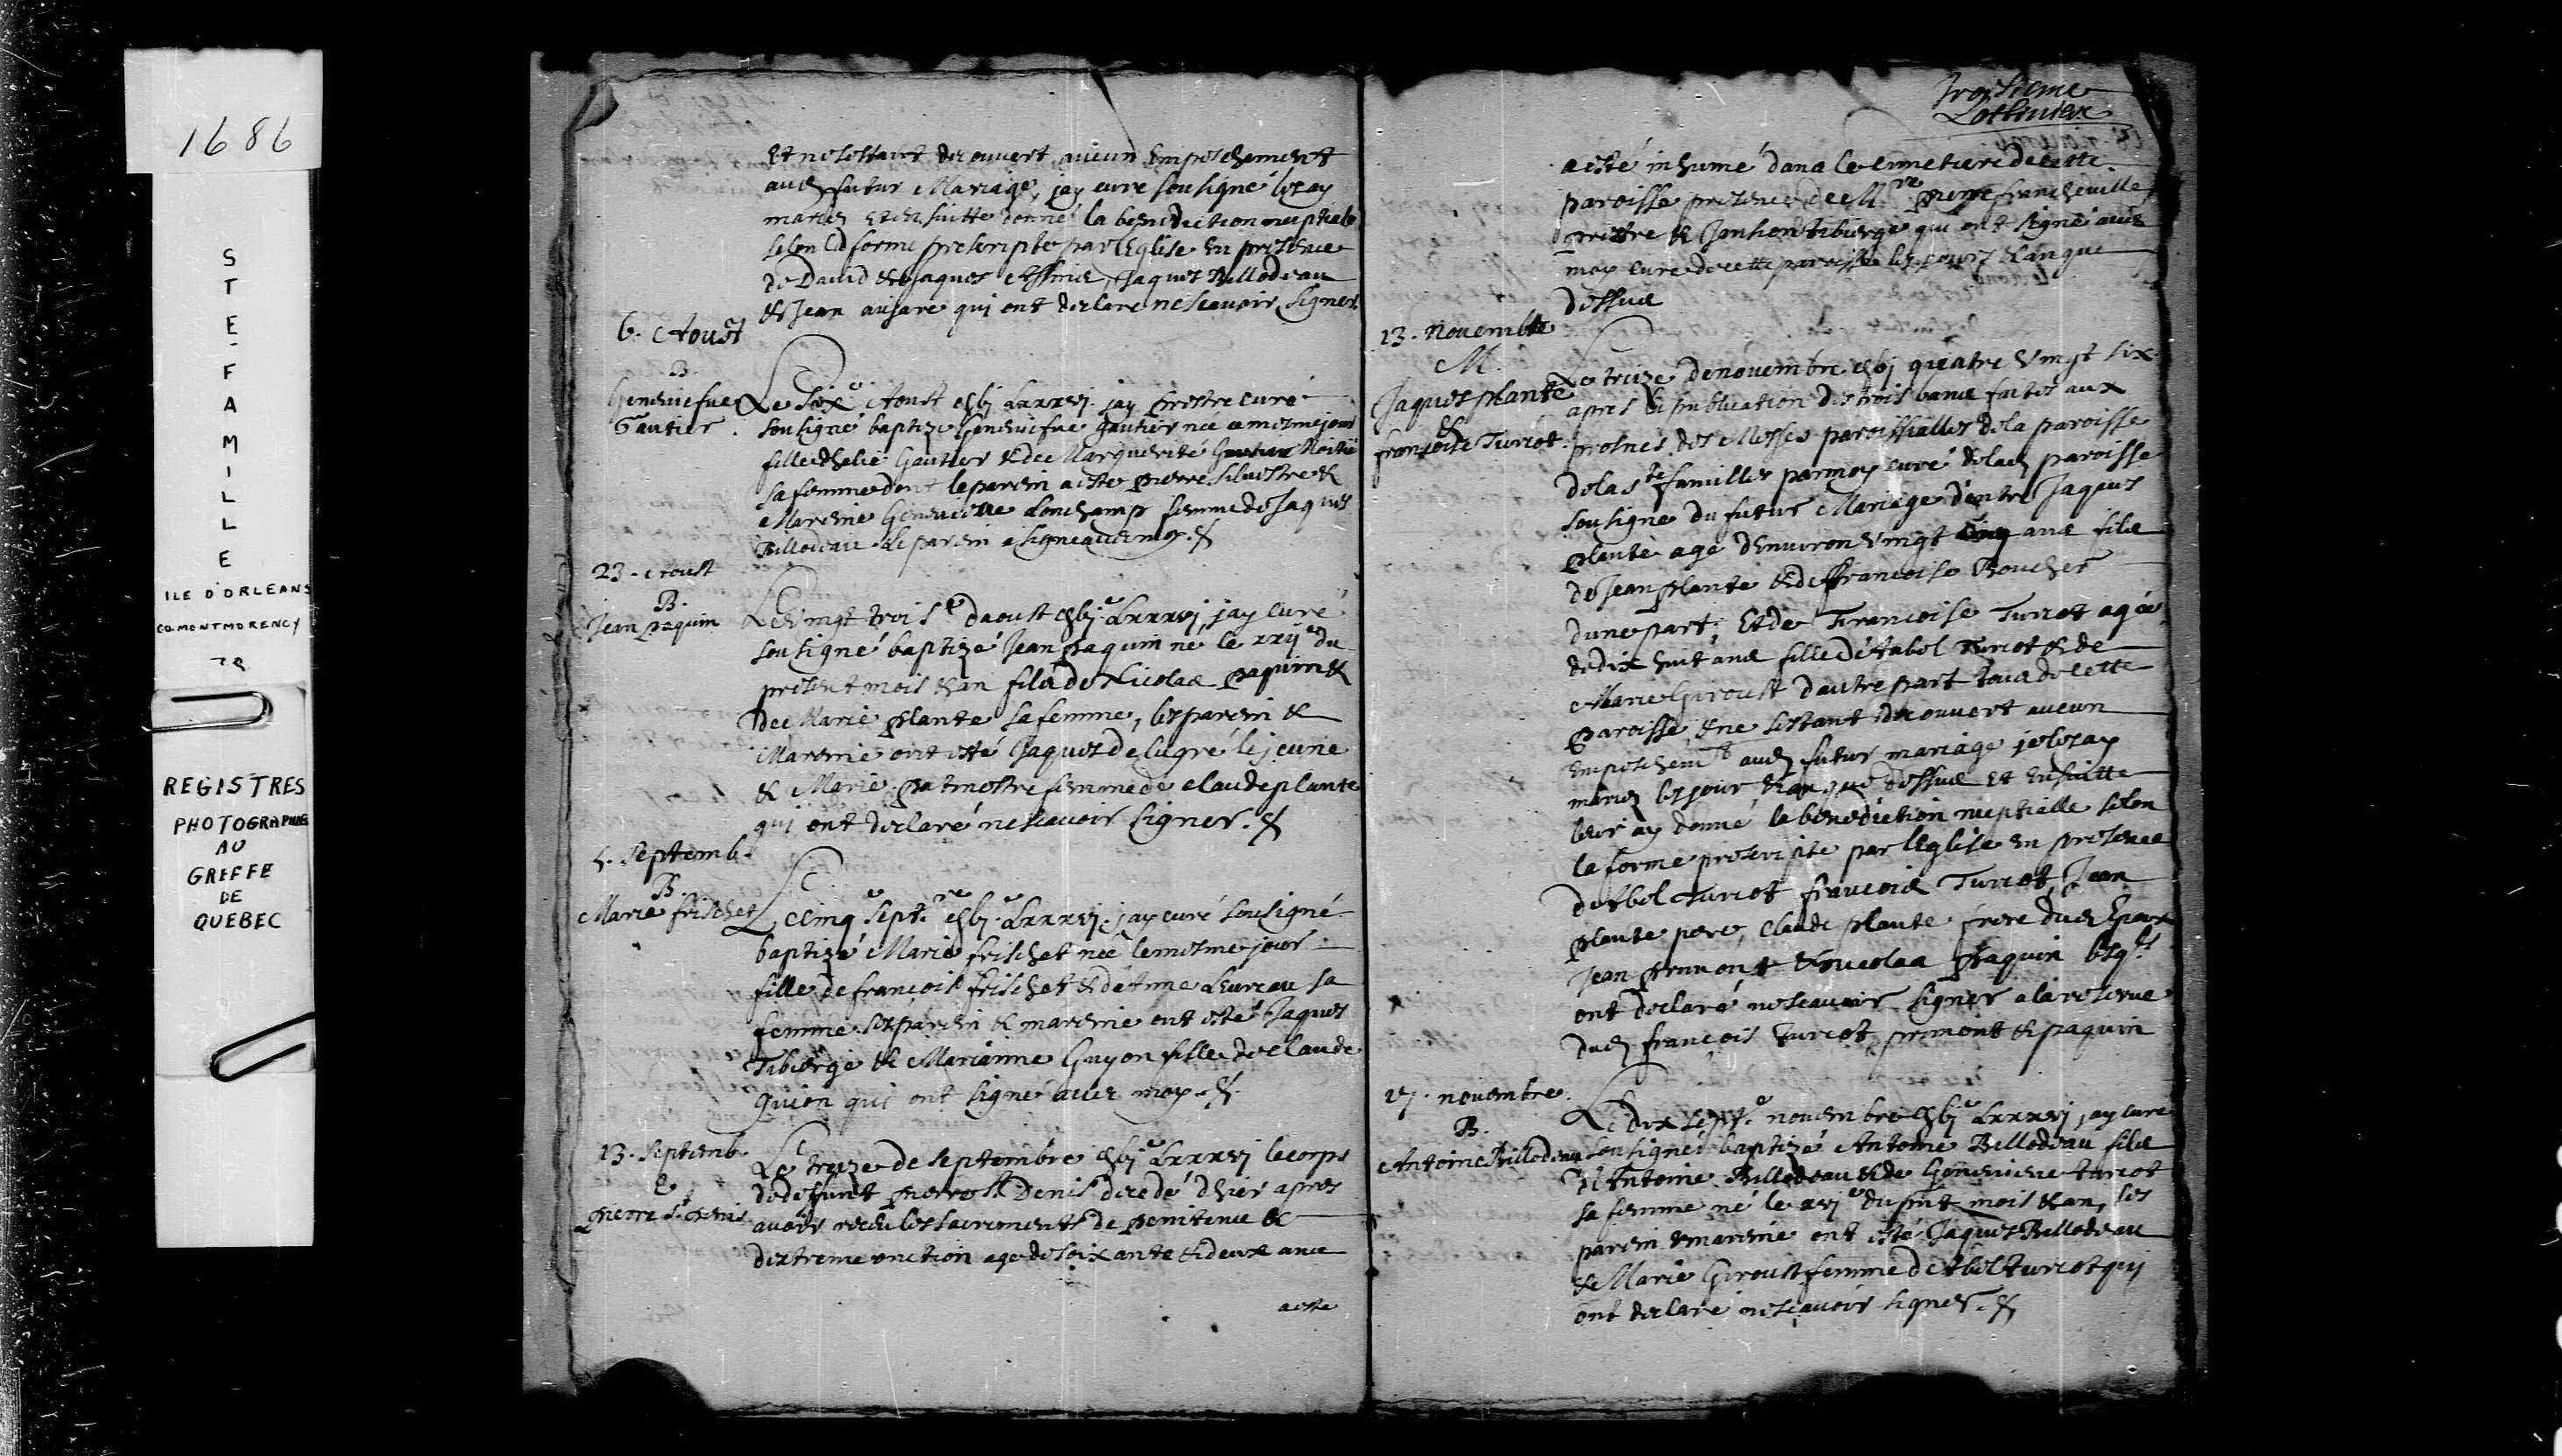 1686
STE-FAMILLE
ILE D'ORLEANS
CO. MONTMORENCY
REGISTRES
PHOTOGRAPHIES
AU
GREFFE
DE
QUEBEC
Et ne sestant decouvert aucun Empeschement
aud futur Mariage, jay curé sousigné les ay
mariez et ensuitte donné la benediction nuptiale
selon la forme prescripte par l'Eglise en presence
de David & Jaques Estiennes, Jaques Billodeau
& Jean qui ont declaré ne scavoir signer
6. Aoust
B.
Geneviefve
Gautier.
Le Six.e Aoust gbj.e Lxxxvj. jay prestre curé
sousigné baptizé Geneviefve gautier nee ce mesme jour
fille delie Gautier & de Marguerite
sa femme dont le parein a esté pierre silvestre &
Mareine Geneviefve Lonchamp femme de Jaques
Billodeau. Le parein a signé avec moy. &
23. Aoust
B.
Jean paquin
Le Vingt trois.e daoust gbj.e Lxxxvj, jay curé
sousigné baptizé Jean paquin né le xxij.e du
present mois & an fils de Nicolas paquin &
de Marie plante sa femme, les parein &
Mareine ont esté Jaques de lugré le jeune
& Marie patnostre femme de claude plante
qui ont declaré ne scavoir signer. &
5. Septemb.
B.
Marie frischet
Le cinq.e Sept.re gbj.e Lxxxvj. jay curé sousigné
baptizé Marie frischet née le mesme jour
fille de françois frischet & d'Anne Leureau sa
femme. ses parein & mareine ont esté Jaques
Tabierge & Marianne Guyon fille de claude
Guion qui ont signé avec moy. &
13. Septemb.
pierre S.t Denis
Le treize de Septembre gbj.e Lxxxvj le corps
de deffunt pierre S.t Denis decedé d'hier apres
avoir receu les sacrements de penitence &
dextreme onction age de soixante & deux ans
a esté
troisieme
Lotbiniere
a esté inhumé dans le cimetiere de cette
paroisse presence de M.re pierre francheville
prestre & Tabierge qui ont signé avec
moy curé de cette paroisse les jours & an que
dessus
13. Novembre
M.
Jaques plante
&
françoise Turcot.
Le treize de novembre gbj quatre Vingt six
apres la publication des trois bans faites aux
prosnes des Messes paroissialles de la paroisse
de la S.te famille par moy curé de lad paroisse
sousigné du futur Mariage d'entre Jaques
plante agé denviron Vingt ans fils
de Jean plante & de francoise Boucher
dune part; Et de Francoise Turcot agée
de dix huit ans fille de Abel Turcot & de
Marie Giroust dautre part tous de cette
paroisse & ne sestant decouvert aucun
Empeschem.t aud futur mariage je les ay
mariez les jour & an que dessus Et ensuitte
leur ay donné la benediction nuptialle selon
la forme prescripte par l'Eglise en presence
de Abel Turcot françois Turcot, Jean
plante pere, claude plante frere dud Epoux
Jean prémont & nicolas paquin lesq.ls
ont declaré ne scavoir signer a la reserve
dud françois Turcot, premont & paquin
17. novembre
B.
Antoine Billodeau
Le dix Sept.e novembre gbj.e Lxxxvj, jay curé
sousigné baptizé Antoine Billodeau fils
d'Antoine Billodeau & de Genevieve turcot
sa femme né le xvj.e du pnt mois & an, les
parein & mareine ont esté Jaques Billodeau
& Marie Giroust femme de Abel turcot qui
ont declaré ne scavoir signer. &